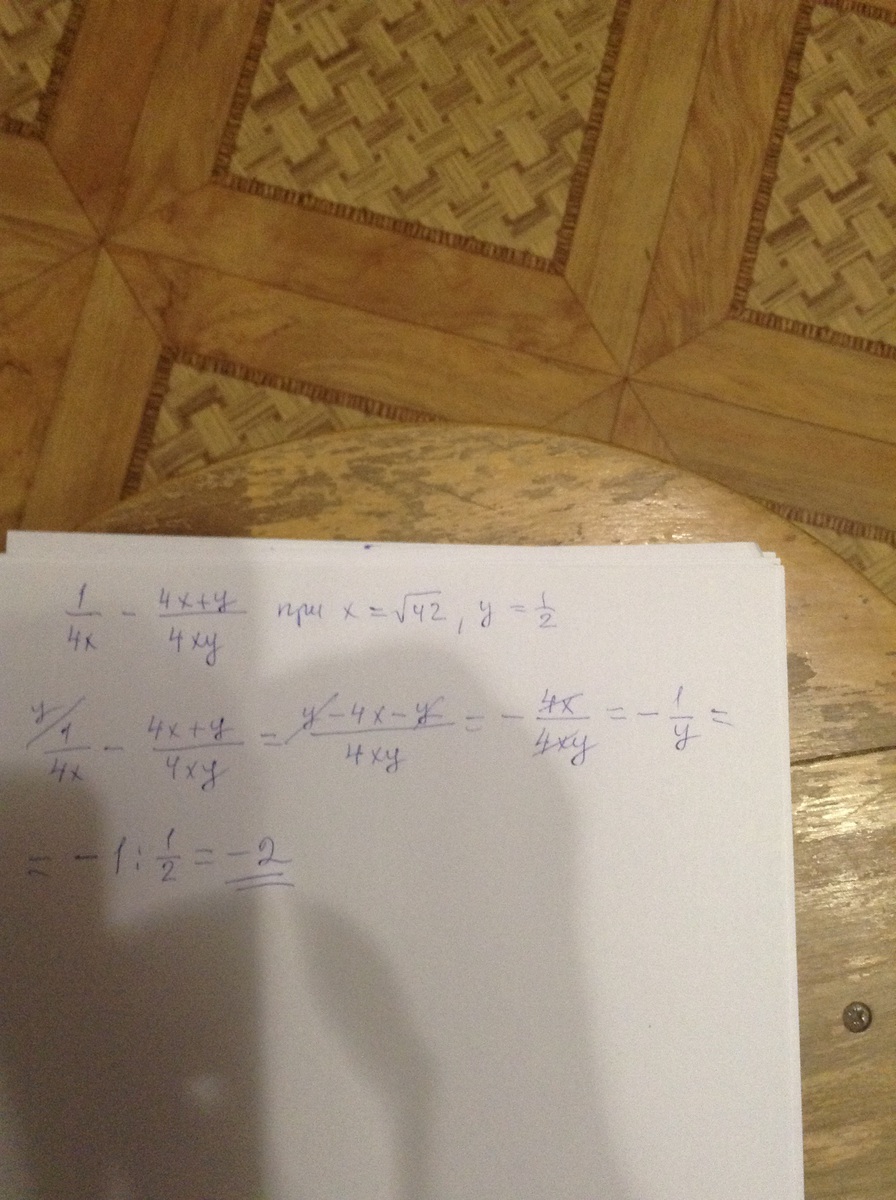 1/4x - 4x+y/4xy при x = √42, y = 1/2
y/ 1/4x - 4x+y/4xy = y-4x-y/4xy = - 4x/4xy = - 1/y =
= - 1 : 1/2 = -2